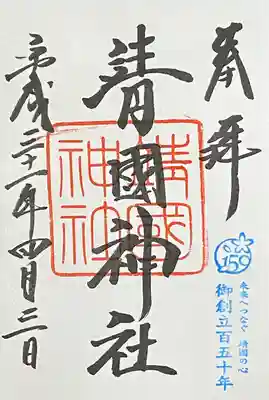 奉拝
靖國神社
靖國神社
平成三十一年四月三日
150
未来へつなぐ 靖國の心
御創立百五十年